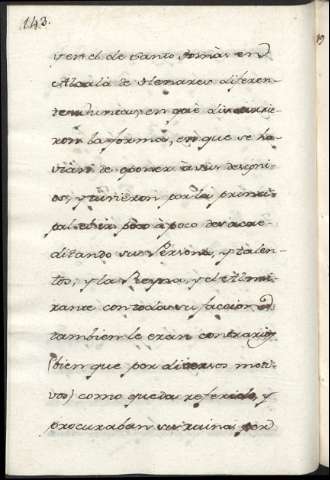 143.
y en el de Santo Tomàs en
Alcalà de Henares diferen-
tes Juntas, en què discurrie-
ron la forma, en que se ha-
vian de oponer à sus designi-
os, y tuvieron por la princi-
pal el ir poco à poco desacre-
ditando su Persona, y talen-
tos; y la Reyna, y el Almi-
rante con toda su faccion, q.
tambien le eran contrarios
(bien que por diversos moti-
vos) como queda referido, y
procuraban su ruina, por